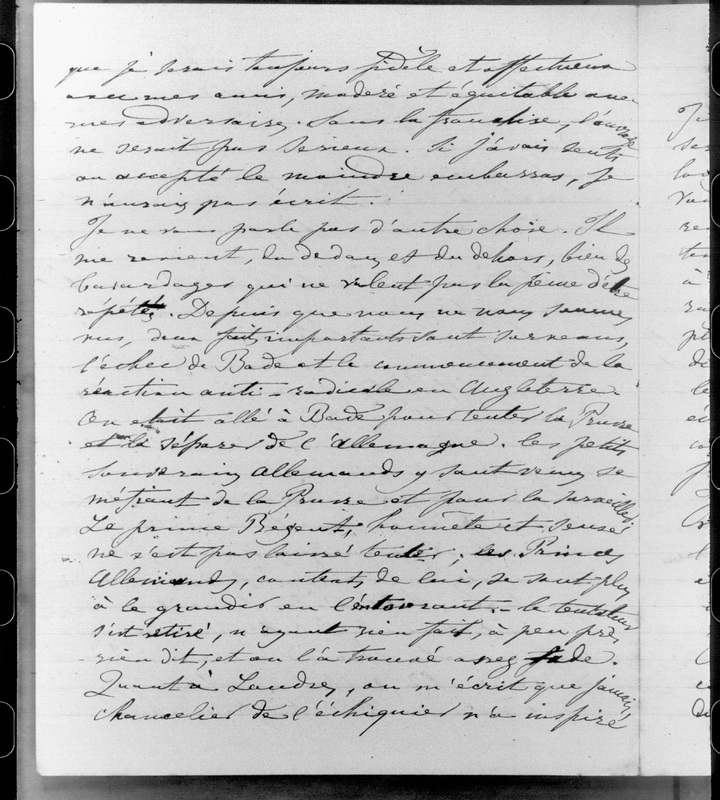 que je serais toujours fidèle et affectueux
avec mes amis, modéré et équitable avec
mes adversaires. Sans la franchise, l'ouvrage
ne serait pas serieux. Si j'avais senti
ou accepté le moindre embarras, je
n'aurais pas écrit.
Je ne vous parle pas d'autre chose. Il
me revient, du dedans et du dehors, bien des
bavardages qui ne valent pas la peine d'être
répétés. Depuis que nous ne nous sommes
vus, deux faits importants sont survenus,
l'échec de Bade et le commencement de la
réaction anti-radicale en Angleterre.
On était allé à Bade pour tenter la Prusse
et la séparer de l'Allemagne. les petits
souverains allemands y sont venus se
méfiant de la Prusse et pour la surveiller.
Le prince Régent, honnête et sensé
ne s'est pas laissé tenter; les Princes
Allemands, contents de lui, se sont plu
à le grandir en l'entourant. le tentateur
s'est retiré, n'ayant rien fait, à peu près
rien dit, et on l'a trouvé assez fade.
Quant à Londres, on m'écrit que jamais
chancelier de l'échiquier n'a inspiré